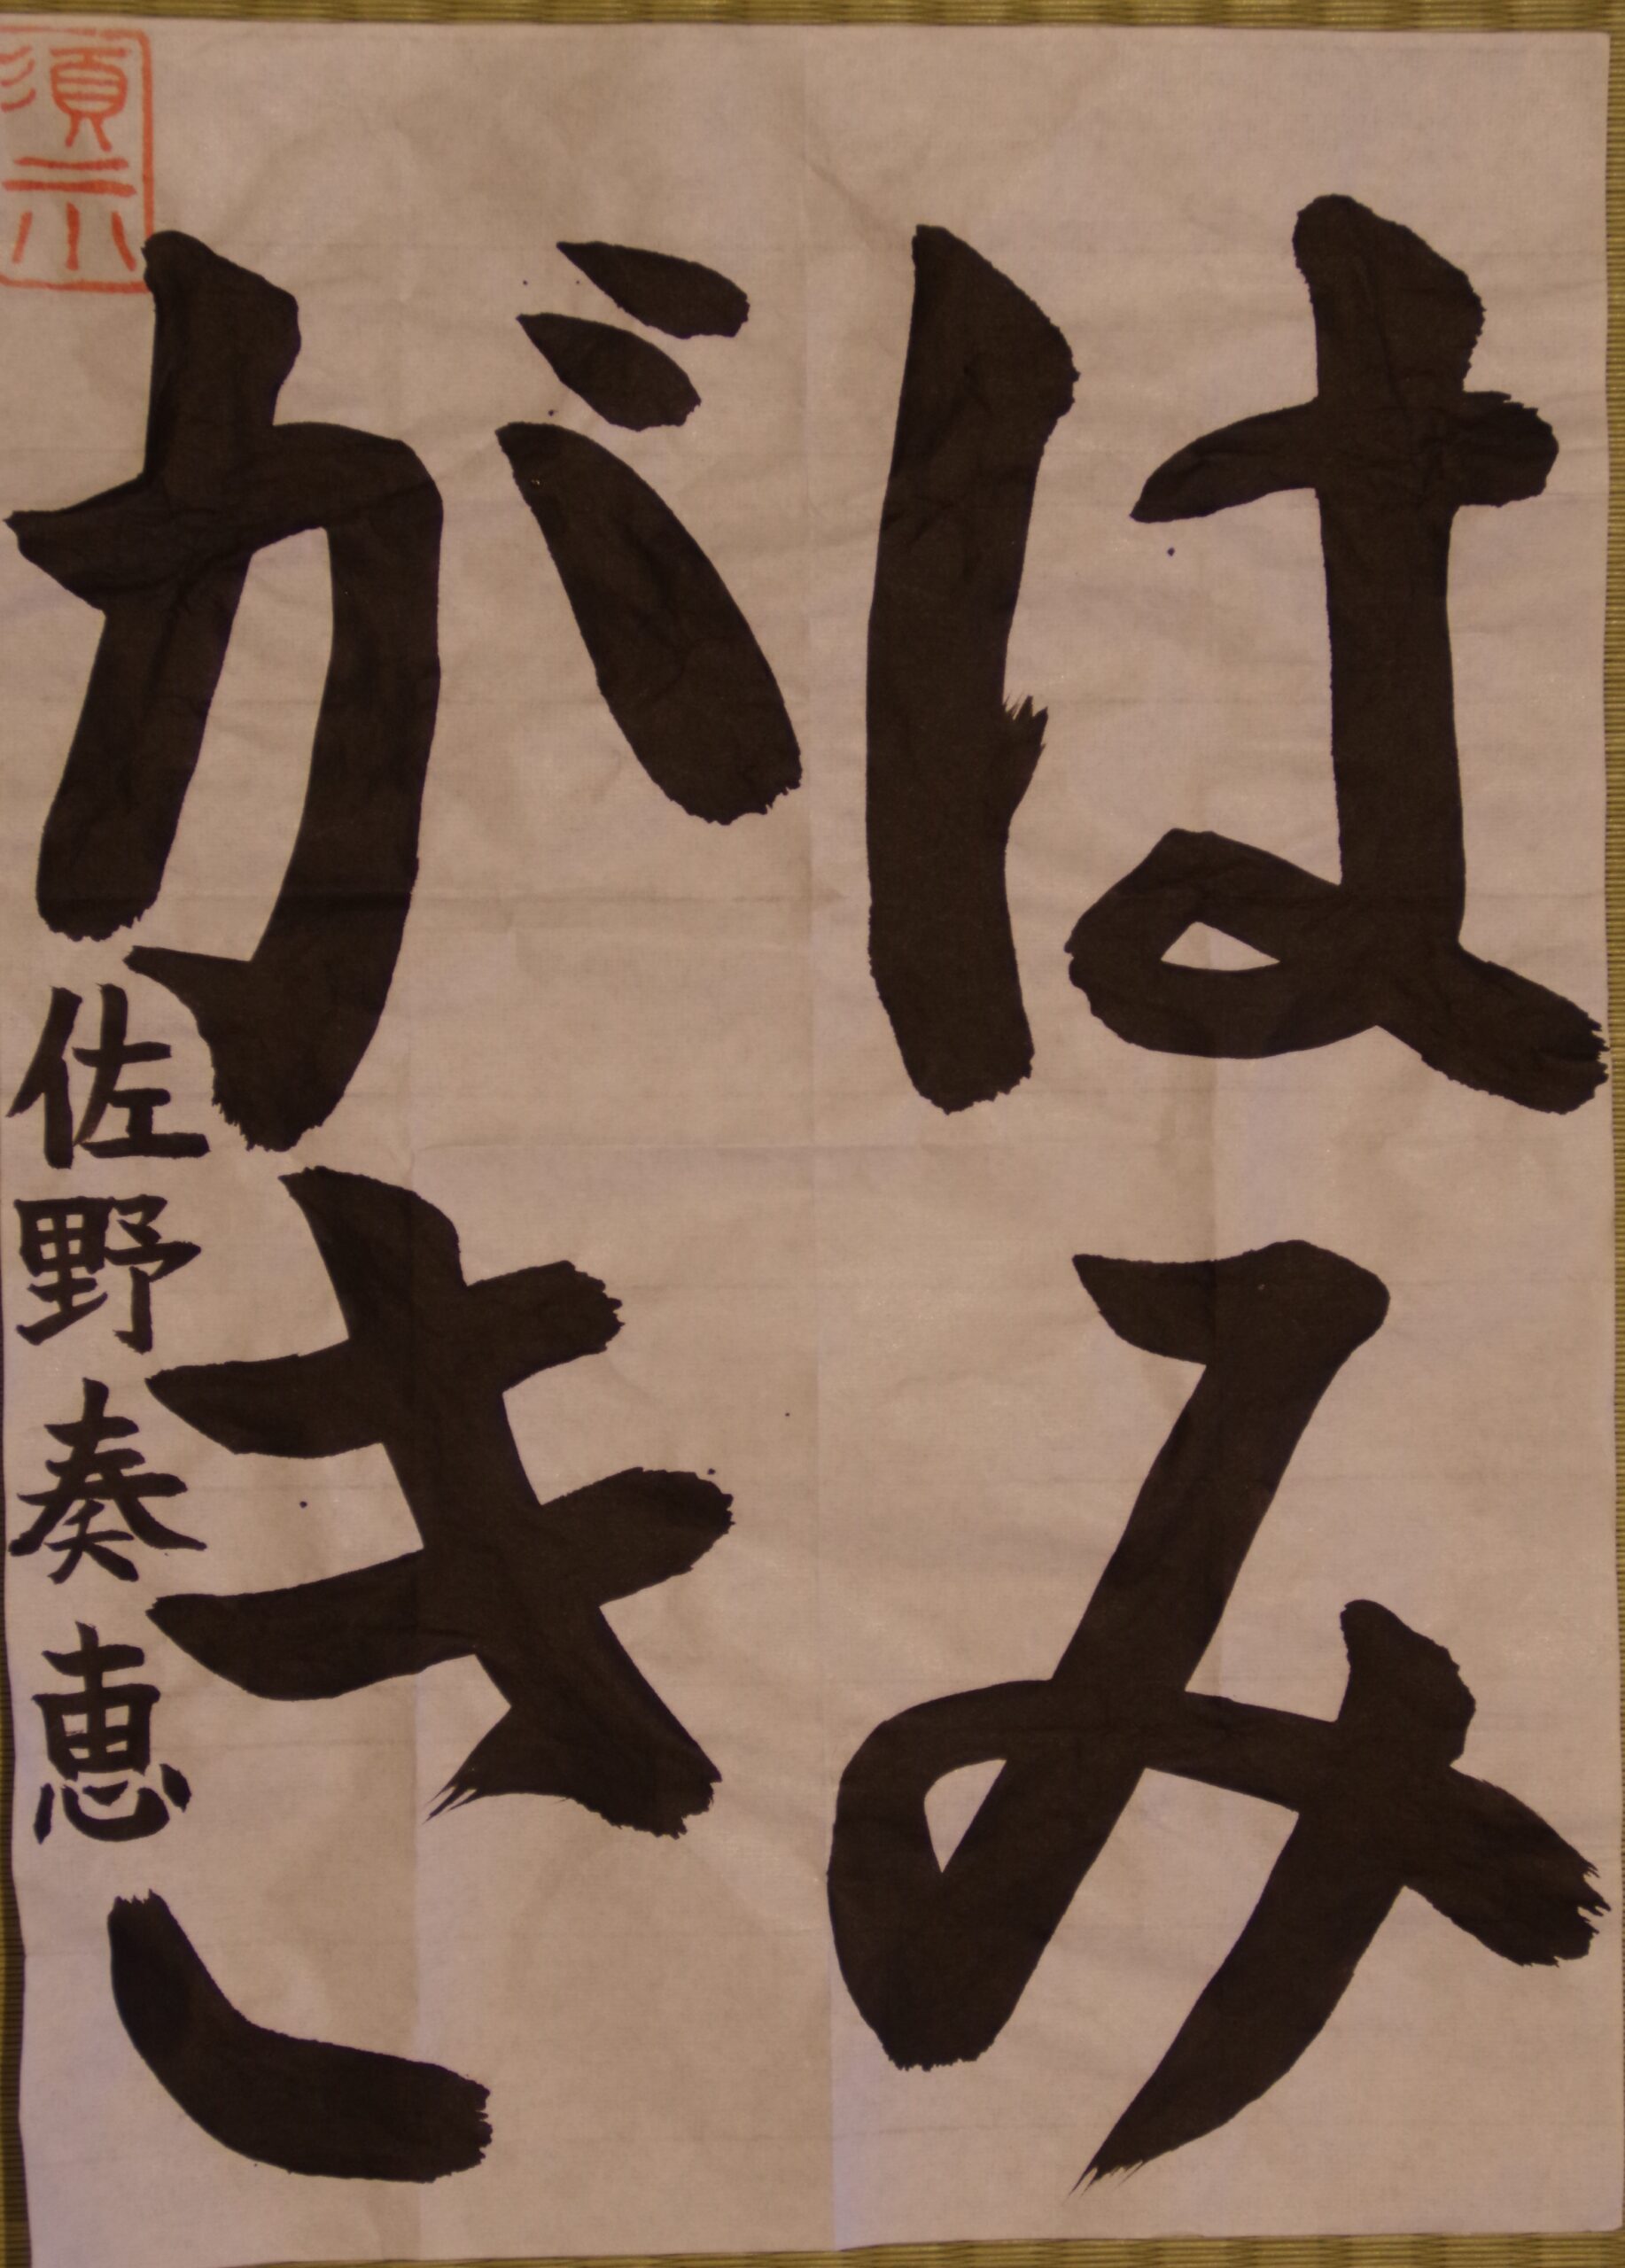 はみ
がき
佐野奏恵
須六